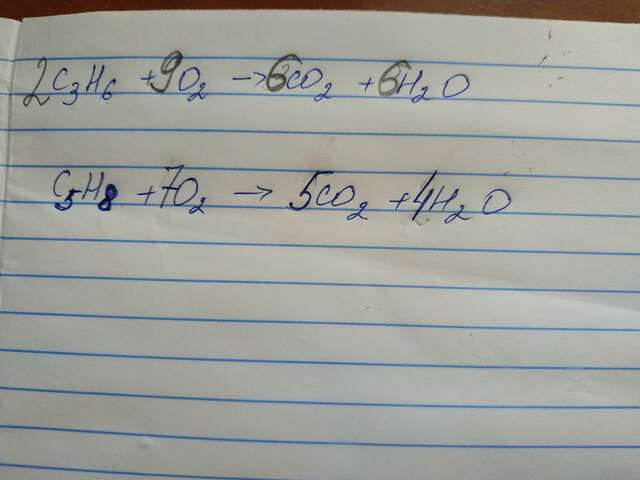 2C₃H₆ + 9O₂ → 6CO₂ + 6H₂O
C₅H₈ + 7O₂ → 5CO₂ + 4H₂O